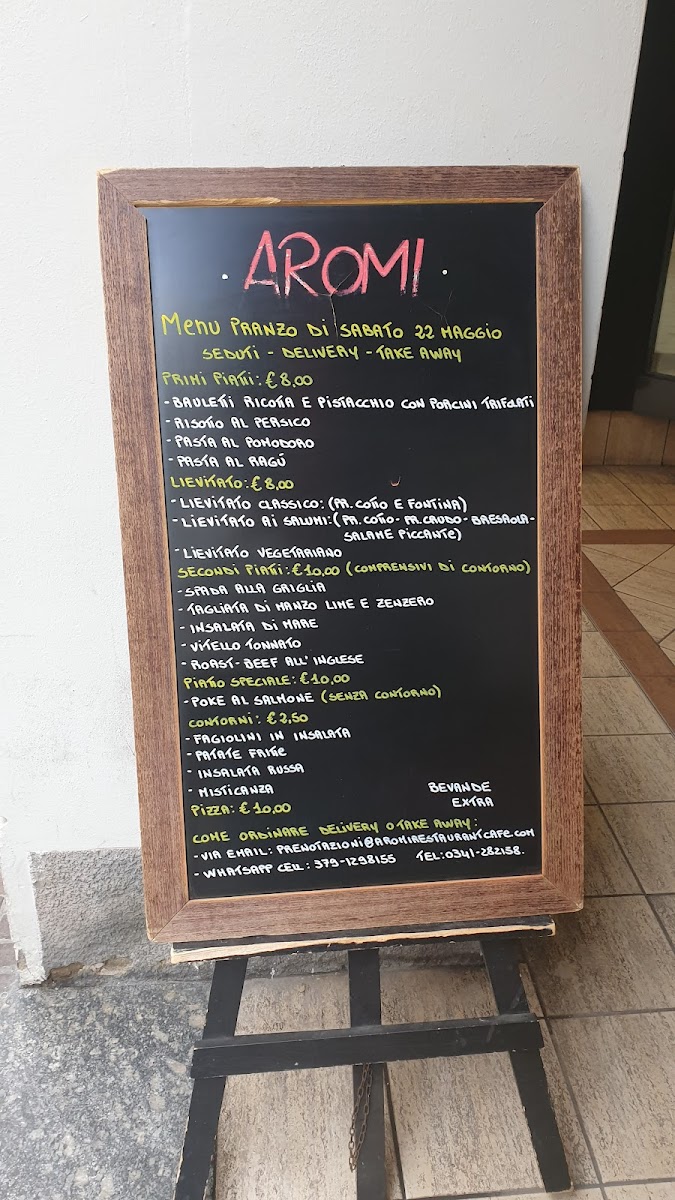 · AROMI ·
MENU PRANZO DI SABATO 22 MAGGIO
SEDUTI - DELIVERY - TAKE AWAY
PRIMI PIATTI: € 8,00
- BAULETTI RICOTTA E PISTACCHIO CON PORCINI TRIFOLATI
- RISOTTO AL PERSICO
- PASTA AL POMODORO
- PASTA AL RAGÚ
LIEVITATO: € 8,00
- LIEVITATO CLASSICO: (PR. COTTO E FONTINA)
- LIEVITATO AI SALUMI: (PR. COTTO - PR. CRUDO - BRESAOLA -
SALAME PICCANTE)
- LIEVITATO VEGETARIANO
SECONDI PIATTI: € 10,00 (COMPRENSIVI DI CONTORNO)
- SPADA ALLA GRIGLIA
- TAGLIATA DI MANZO LIME E ZENZERO
- INSALATA DI MARE
- VITELLO TONNATO
- ROAST-BEEF ALL'INGLESE
PIATTO SPECIALE: € 10,00
- POKE AL SALMONE (SENZA CONTORNO)
CONTORNI: € 2,50
- FAGIOLINI IN INSALATA
- PATATE FRITTE
- INSALATA RUSSA
- MISTICANZA
BEVANDE
EXTRA
PIZZA: € 10,00
COME ORDINARE DELIVERY O TAKE AWAY:
- VIA EMAIL: PRENOTAZIONI@AROMIRESTAURANTCAFE.COM
- WHATSAPP CELL: 379-1298155 TEL: 0341-282158.